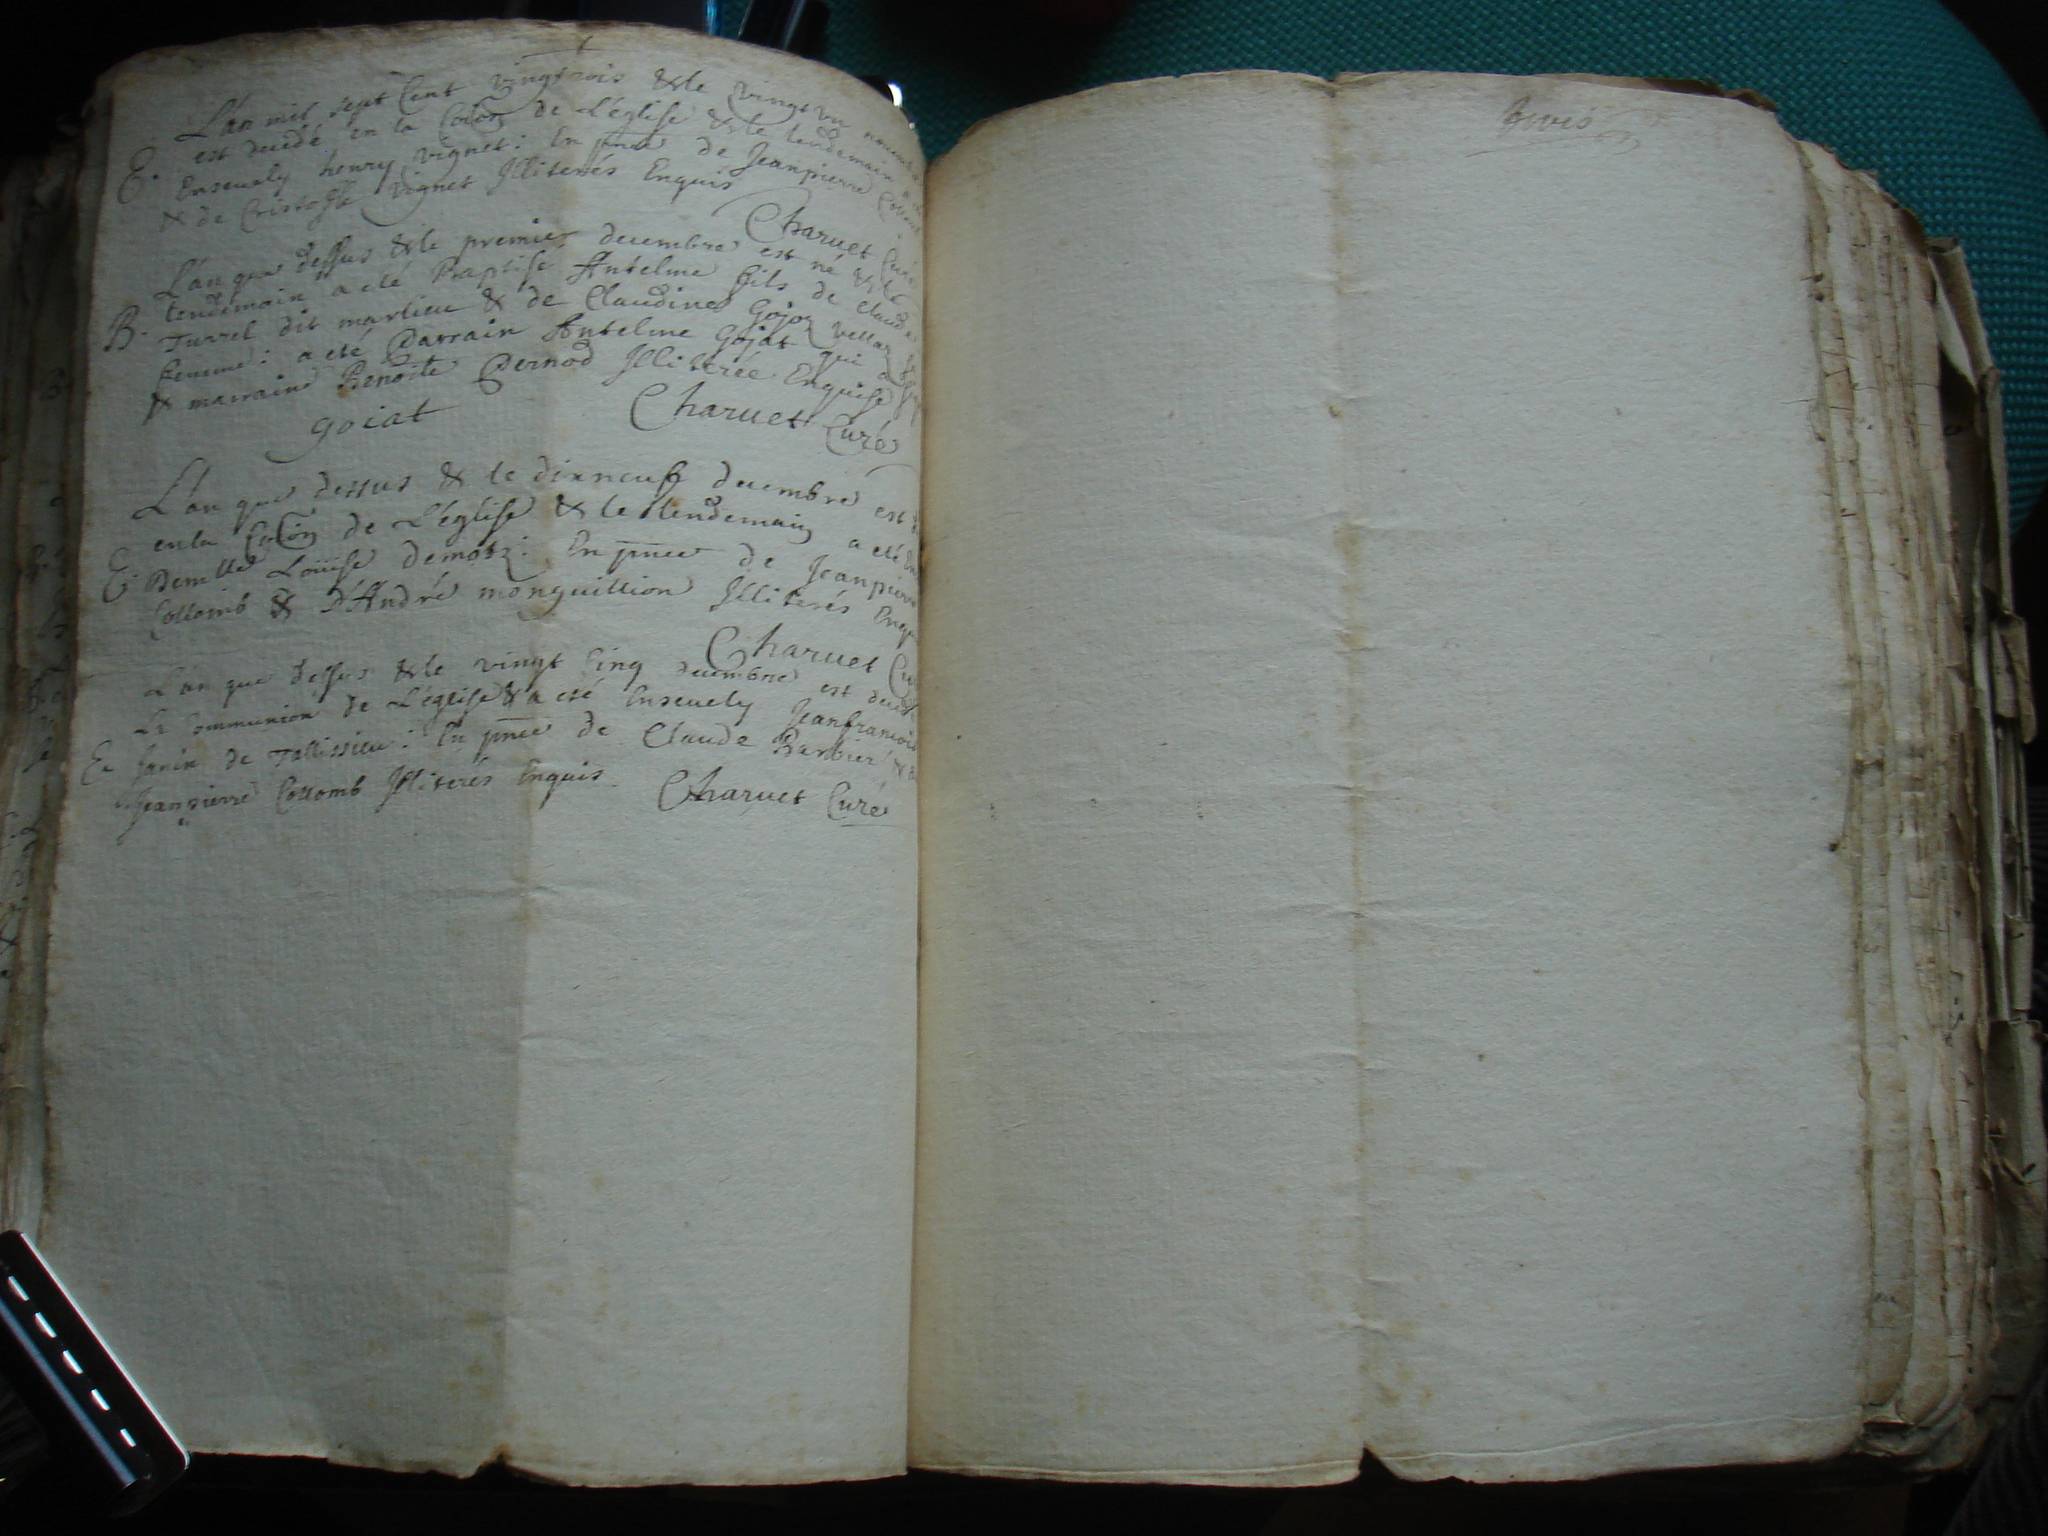 L'an mil sept Cent vingt trois & le vingt vn novemb
E. est decedé en la Coion de L'église & le lendemain a
Enseuely henry vignet: En pnce de Jeanpierre
& de Cristofle Vignet Illiterés Enquis
Charuet Curé
L'an que dessus & le premier decembre est né & le
B. lendemain a eté Baptisé Antelme fils de Claude
Turrel dit marlieu & de Claudine Gojoz
femme: a eté Parrain Antelme Gojat qui a
& marraine Benoîte Pernod Illiterée Enquise
goiat Charuet Curé
L'an que dessus & le dixneuf decembre est
en la Coion de L'église & le lendemain a eté
E. Demlle Loüise demotz: En pnce de Jeanpierre
Collomb & D'André monguillion Illiterés Enqu
Charuet Cu
L'an que dessus & le vingt Cinq decembre est
La Communion de L'église & a eté Enseuely Jeanfrancois
E. Janin de Tallissieu: En pnce de Claude Barbier &
Jeanpierre Collomb Illiterés Enquis
Charuet Curé